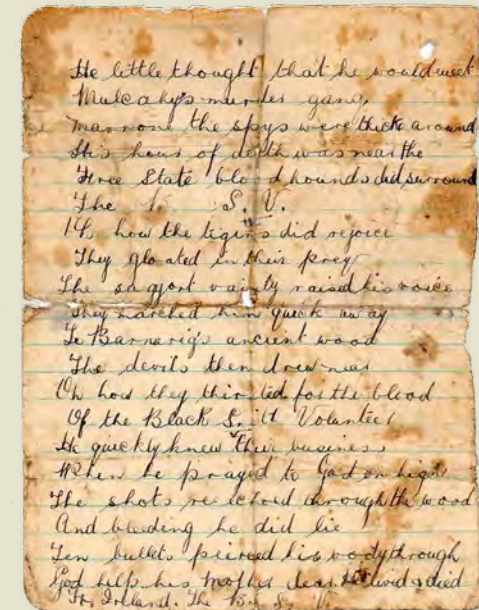 He little thought that he would meet
Mulcahy's murder gang
the spys were thick around
His hour of death was near the
Free State blood hounds did surround
The B. S. V.
Oh how the tigers did rejoice
They gloated in their prey
The vainly raised his voice
They marched him quick away
To Barnarig's ancient wood
The devils then drew near
Oh how they thirsted for the blood
Of the Black Volunteer
He quickly knew their business
When he prayed to God on high
The shots reechoed through the wood
And bleeding he did lie
Ten bullets pierced his through
God help his Mother dear. He lived & died
For Ireland. The B. S. V.